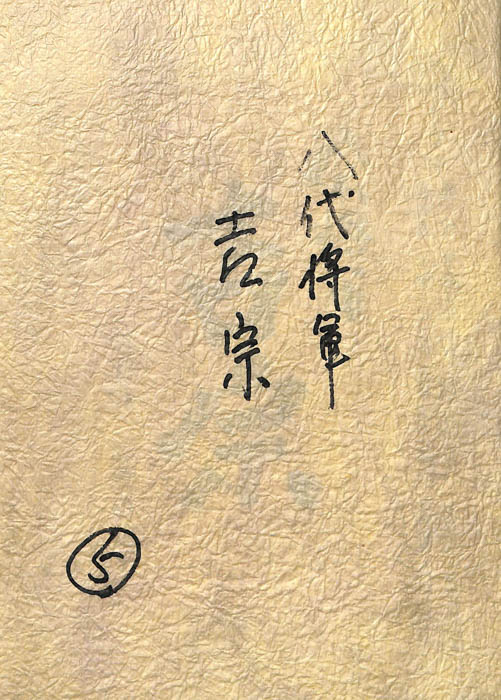 八代将軍
吉宗
⑤